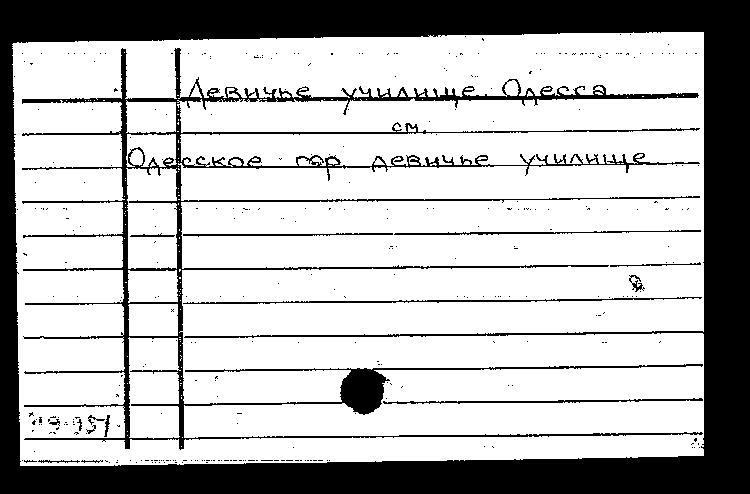 Девичье училище. Одесса
см.
Одесское гор. девичье училище